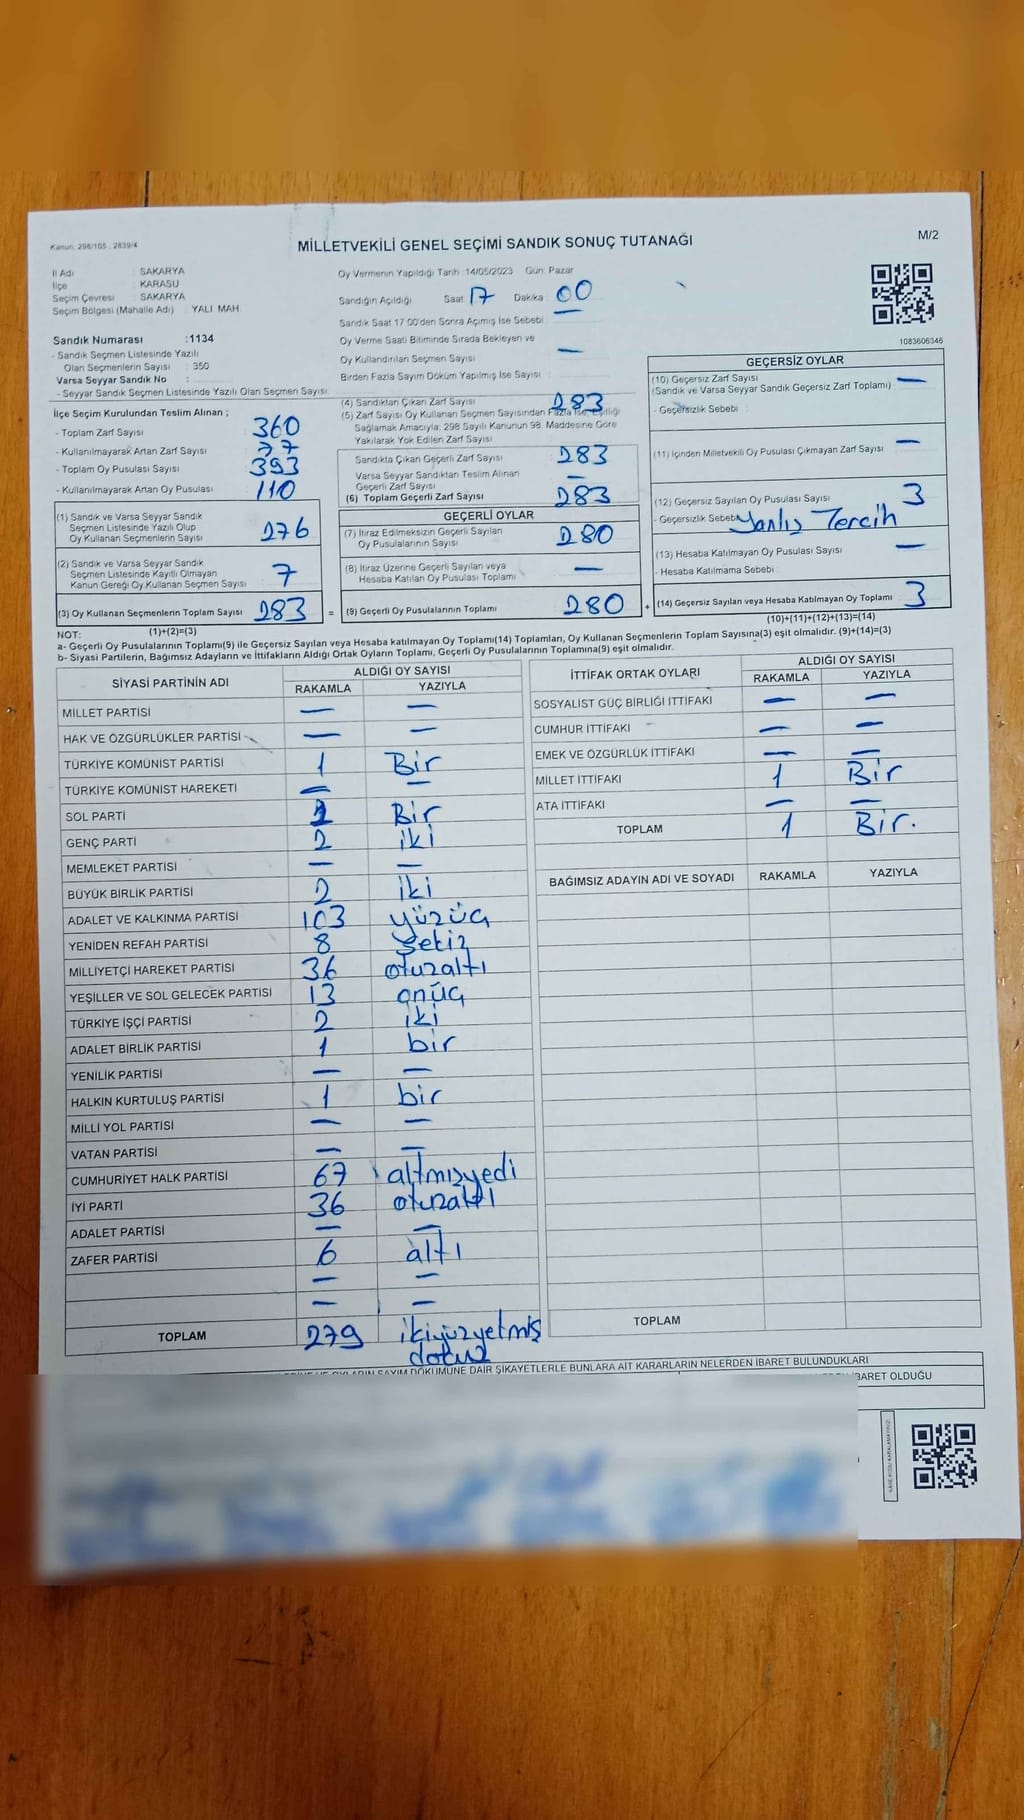 Kanun: 298/105 , 2839/4
MİLLETVEKİLİ GENEL SEÇİMİ SANDIK SONUÇ TUTANAĞI
M/2
İl Adı : SAKARYA
İlçe : KARASU
Seçim Çevresi : SAKARYA
Seçim Bölgesi (Mahalle Adı) : YALI MAH
Sandık Numarası :1134
- Sandık Seçmen Listesinde Yazılı
Olan Seçmenlerin Sayısı : 350
Varsa Seyyar Sandık No :
- Seyyar Sandık Seçmen Listesinde Yazılı Olan Seçmen Sayısı:
Oy Vermenin Yapıldığı Tarih: 14/05/2023 Gün: Pazar
Sandığın Açıldığı Saat: 17 Dakika: 00
Sandık Saat 17 00'den Sonra Açımış İse Sebebi :
Oy Verme Saati Bitiminde Sırada Bekleyen ve
Oy Kullandırılan Seçmen Sayısı : —
Birden Fazla Sayım Döküm Yapılmış İse Sayısı :
1083606346
İlçe Seçim Kurulundan Teslim Alınan ;
- Toplam Zarf Sayısı : 360
- Kullanılmayarak Artan Zarf Sayısı : 77
- Toplam Oy Pusulası Sayısı : 393
- Kullanılmayarak Artan Oy Pusulası : 110
(1) Sandık ve Varsa Seyyar Sandık
Seçmen Listesinde Yazılı Olup
Oy Kullanan Seçmenlerin Sayısı 276
(2) Sandık ve Varsa Seyyar Sandık
Seçmen Listesinde Kayıtlı Olmayan
Kanun Gereği Oy Kullanan Seçmen Sayısı 7
(3) Oy Kullanan Seçmenlerin Toplam Sayısı 283 =
(1)+(2)=(3)
(4) Sandıktan Çıkan Zarf Sayısı : 283
(5) Zarf Sayısı Oy Kullanan Seçmen Sayısından Fazla İse, Eşitliği
Sağlamak Amacıyla; 298 Sayılı Kanunun 98. Maddesine Göre
Yakılarak Yok Edilen Zarf Sayısı :
Sandıkta Çıkan Geçerli Zarf Sayısı : 283
Varsa Seyyar Sandıktan Teslim Alınan
Geçerli Zarf Sayısı : —
(6) Toplam Geçerli Zarf Sayısı : 283
GEÇERLİ OYLAR
(7) İtiraz Edilmeksizin Geçerli Sayılan
Oy Pusulalarının Sayısı : 280
(8) İtiraz Üzerine Geçerli Sayılan veya
Hesaba Katılan Oy Pusulası Toplamı : —
(9) Geçerli Oy Pusulalarının Toplamı 280 +
GEÇERSİZ OYLAR
(10) Geçersiz Zarf Sayısı :
(Sandık ve Varsa Seyyar Sandık Geçersiz Zarf Toplamı) —
- Geçersizlik Sebebi :
(11) İçinden Milletvekili Oy Pusulası Çıkmayan Zarf Sayısı : —
(12) Geçersiz Sayılan Oy Pusulası Sayısı : 3
- Geçersizlik Sebebi Yanlış Tercih
(13) Hesaba Katılmayan Oy Pusulası Sayısı : —
- Hesaba Katılmama Sebebi :
(14) Geçersiz Sayılan veya Hesaba Katılmayan Oy Toplamı 3
(10)+(11)+(12)+(13)=(14)
NOT:
a- Geçerli Oy Pusulalarının Toplamı(9) ile Geçersiz Sayılan veya Hesaba katılmayan Oy Toplamı(14) Toplamları, Oy Kullanan Seçmenlerin Toplam Sayısına(3) eşit olmalıdır. (9)+(14)=(3)
b- Siyasi Partilerin, Bağımsız Adayların ve İttifakların Aldığı Ortak Oyların Toplamı, Geçerli Oy Pusulalarının Toplamına(9) eşit olmalıdır.
SİYASİ PARTİNİN ADI ALDIĞI OY SAYISI
RAKAMLA YAZIYLA
MİLLET PARTİSİ — —
HAK VE ÖZGÜRLÜKLER PARTİSİ — —
TÜRKİYE KOMÜNİST PARTİSİ 1 Bir
TÜRKİYE KOMÜNİST HAREKETİ — —
SOL PARTİ 1 Bir
GENÇ PARTİ 2 iki
MEMLEKET PARTİSİ — —
BÜYÜK BİRLİK PARTİSİ 2 iki
ADALET VE KALKINMA PARTİSİ 103 yüzüç
YENİDEN REFAH PARTİSİ 8 Sekiz
MİLLİYETÇİ HAREKET PARTİSİ 36 otuzaltı
YEŞİLLER VE SOL GELECEK PARTİSİ 13 onüç
TÜRKİYE İŞÇİ PARTİSİ 2 iki
ADALET BİRLİK PARTİSİ 1 bir
YENİLİK PARTİSİ — —
HALKIN KURTULUŞ PARTİSİ 1 bir
MİLLİ YOL PARTİSİ — —
VATAN PARTİSİ — —
CUMHURİYET HALK PARTİSİ 67 altmışyedi
İYİ PARTİ 36 otuzaltı
ADALET PARTİSİ — —
ZAFER PARTİSİ 6 altı
— —
— —
TOPLAM 279 ikiyüzyetmiş
dokuz
İTTİFAK ORTAK OYLARI ALDIĞI OY SAYISI
RAKAMLA YAZIYLA
SOSYALİST GÜÇ BİRLİĞİ İTTİFAKI — —
CUMHUR İTTİFAKI — —
EMEK VE ÖZGÜRLÜK İTTİFAKI — —
MİLLET İTTİFAKI 1 Bir
ATA İTTİFAKI — —
TOPLAM 1 Bir.
BAĞIMSIZ ADAYIN ADI VE SOYADI RAKAMLA YAZIYLA
TOPLAM
VE OYLARIN SAYIM DÖKÜMÜNE DAİR ŞİKAYETLERLE BUNLARA AİT KARARLARIN NELERDEN İBARET BULUNDUKLARI
İBARET OLDUĞU